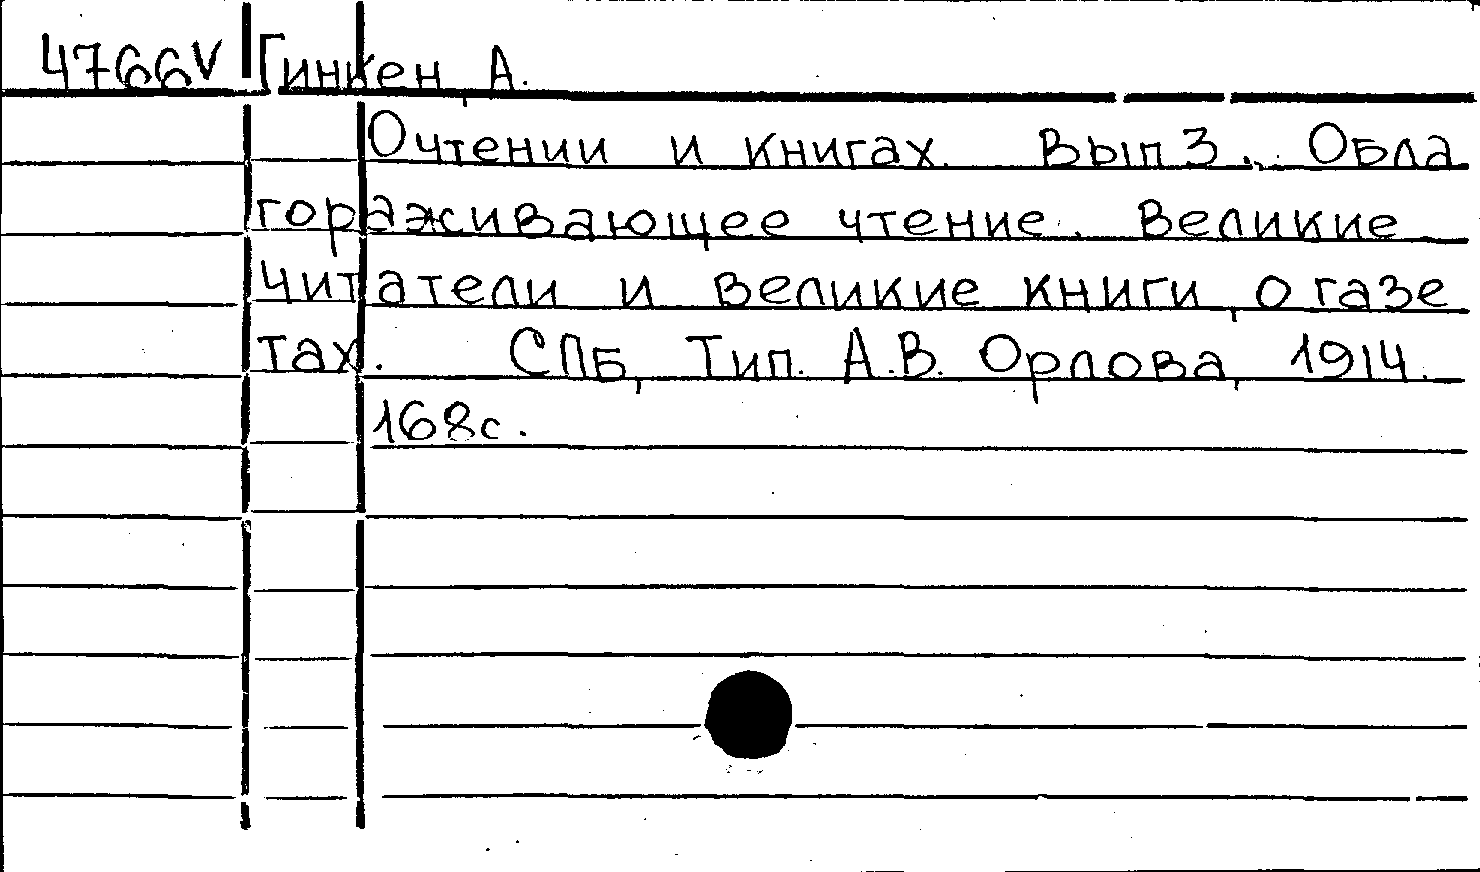 4766V Гинкен, А.
О чтении и книгах. Вып 3. Обла
гораживающее чтение. Великие
читатели и великие книги, о газе
тах. СПБ, Тип. А.В. Орлова, 1914.
168с.